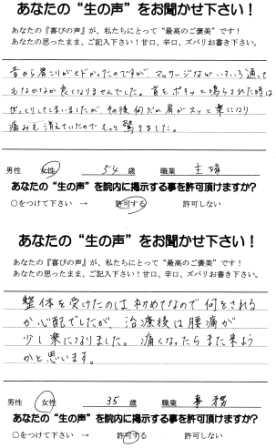 あなたの“生の声”をお聞かせ下さい！
あなたの『喜びの声』が、私たちにとって“最高のご褒美”です！
あなたの思ったまま、ご記入下さい！甘口、辛口、ズバリお書き下さい。
昔から肩こりがヒドかったのですが、マッサージなどいろいろ通って
もなかなか良くなりませんでした。首をボキッと鳴らされた時は
びっくりしてしまいましたが、その後、何だか肩がスッと楽になり
痛みも消えていたのでもっと驚きました。
男性 女性 54歳 職業 主婦
あなたの“生の声”を院内に掲示する事を許可頂けますか？
○をつけて下さい → 許可する 許可しない
あなたの“生の声”をお聞かせ下さい！
あなたの『喜びの声』が、私たちにとって“最高のご褒美”です！
あなたの思ったまま、ご記入下さい！甘口、辛口、ズバリお書き下さい。
整体を受けたのは初めてなので何をされる
か心配でしたが、治療後は腰痛が
少し楽になりました。痛くなったらまた来よう
かと思います。
男性 女性 35歳 職業 事務
あなたの“生の声”を院内に掲示する事を許可頂けますか？
○をつけて下さい → 許可する 許可しない